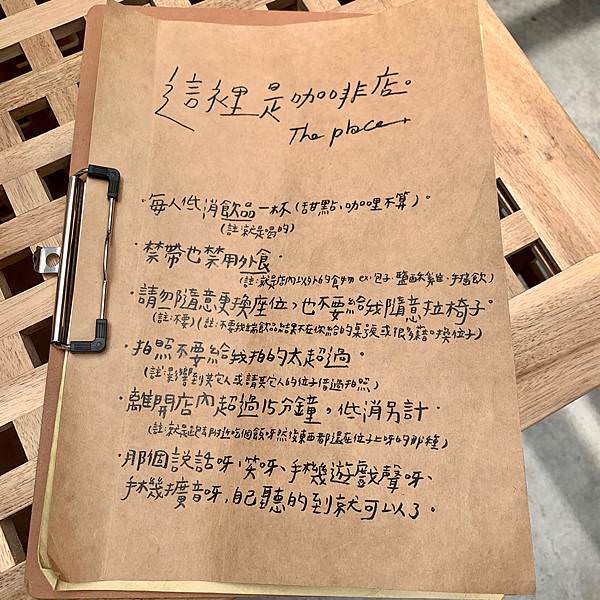 這裡是咖啡店。
The place
・每人低消飲品一杯（甜點、咖哩不算）。
（註：就是喝的）
・禁帶也禁用外食。
（註：就是店內以外的食物 ex：包子、鹽酥雞、手搖飲）
・請勿隨意更換座位，也不要給我隨意拉椅子。
（註：不要）（註：不要我端飲品結果不在你給的桌號 或 很多藉口換位子）
・拍照不要給我拍的太超過。
（註：影響到其它人或請其它人的位子借過拍照）
・離開店內超過15分鐘，低消另計。
（註：就是跑去附近吃個飯呀然後東西都還在位上呀的那種）
・那個說話呀、笑呀、手機遊戲聲呀、
手機擴音呀，自己聽的到就可以了。